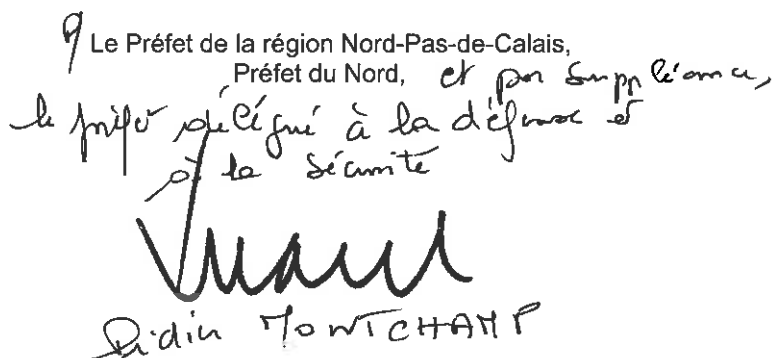 P/ Le Préfet de la région Nord-Pas-de-Calais,
Préfet du Nord, et par suppléance,
le préfet délégué à la défense et
à la sécurité
Didier MONTCHAMP